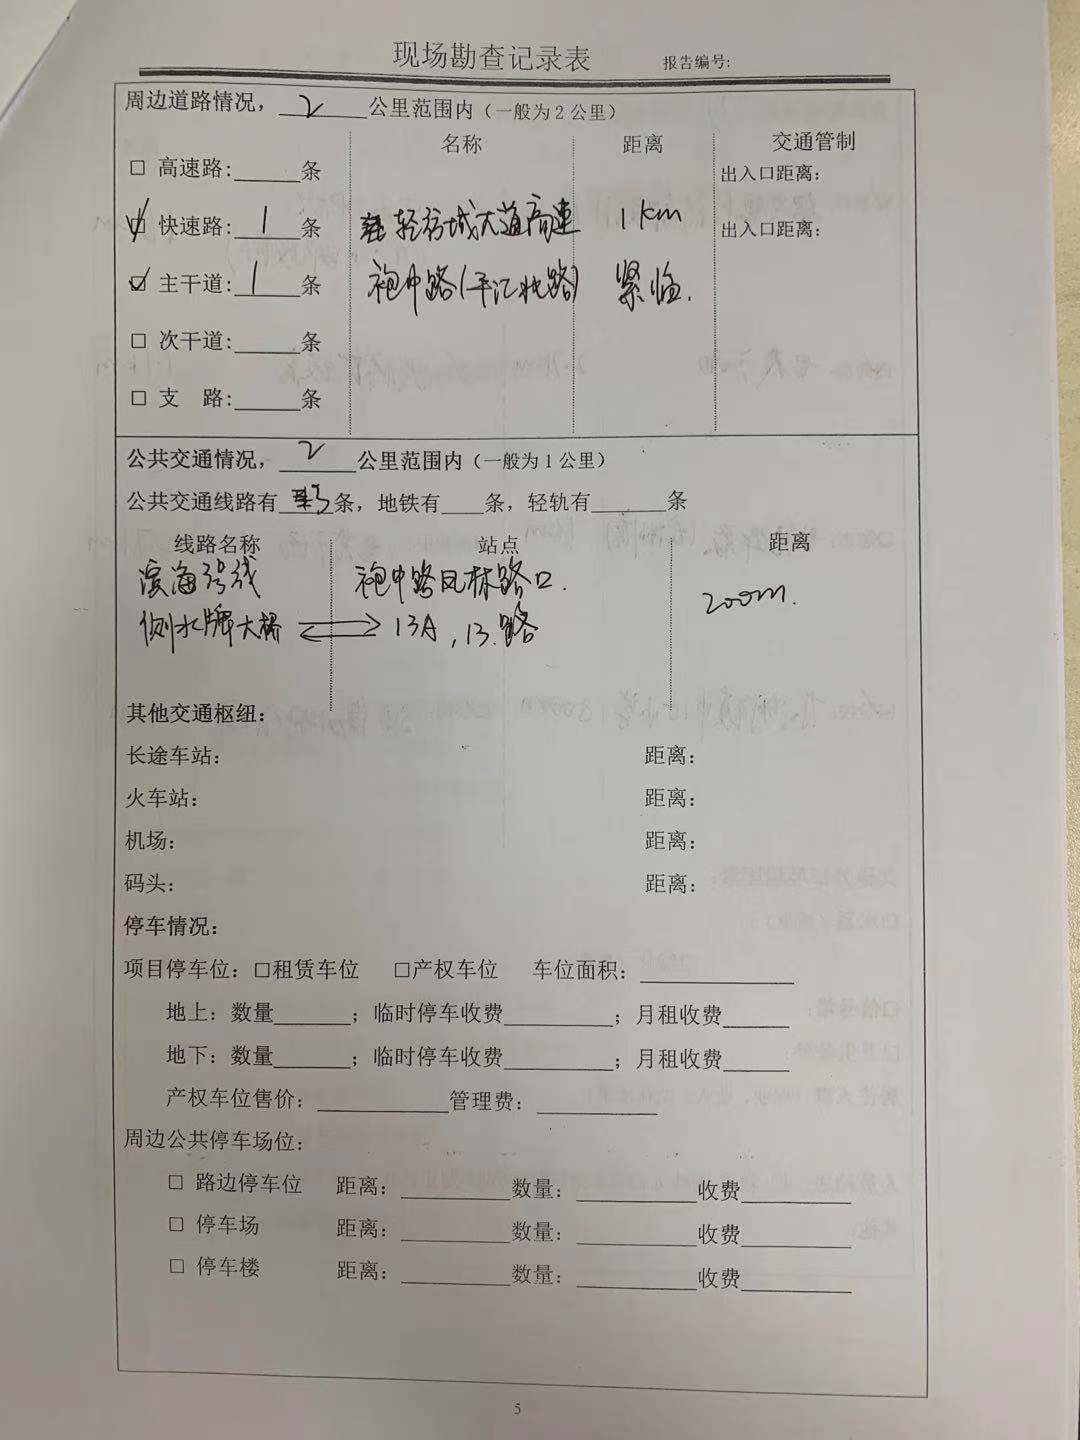 现场勘查记录表 报告编号:
周边道路情况，2公里范围内（一般为2公里）
名称 距离 交通管制
□ 高速路:______条 出入口距离:
☑ 快速路:1条 轻纺城大道高速 1km 出入口距离:
☑ 主干道:1条 袍中路(平江北路) 紧临.
□ 次干道:______条
□ 支 路:______条
公共交通情况，2公里范围内（一般为1公里）
公共交通线路有3条，地铁有____条，轻轨有_______条
线路名称 站点 距离
滨海 袍中路凤林路口. 200m.
水牌大桥 13A, 13.路
其他交通枢纽:
长途车站: 距离:
火车站: 距离:
机场: 距离:
码头: 距离:
停车情况:
项目停车位: □租赁车位 □产权车位 车位面积:______________
地上: 数量_______; 临时停车收费__________; 月租收费______
地下: 数量_______; 临时停车收费__________; 月租收费______
产权车位售价:____________管理费:___________
周边公共停车场位:
□ 路边停车位 距离:__________数量:___________收费__________
□ 停车场 距离:__________数量:___________收费__________
□ 停车楼 距离:__________数量:___________收费__________
5